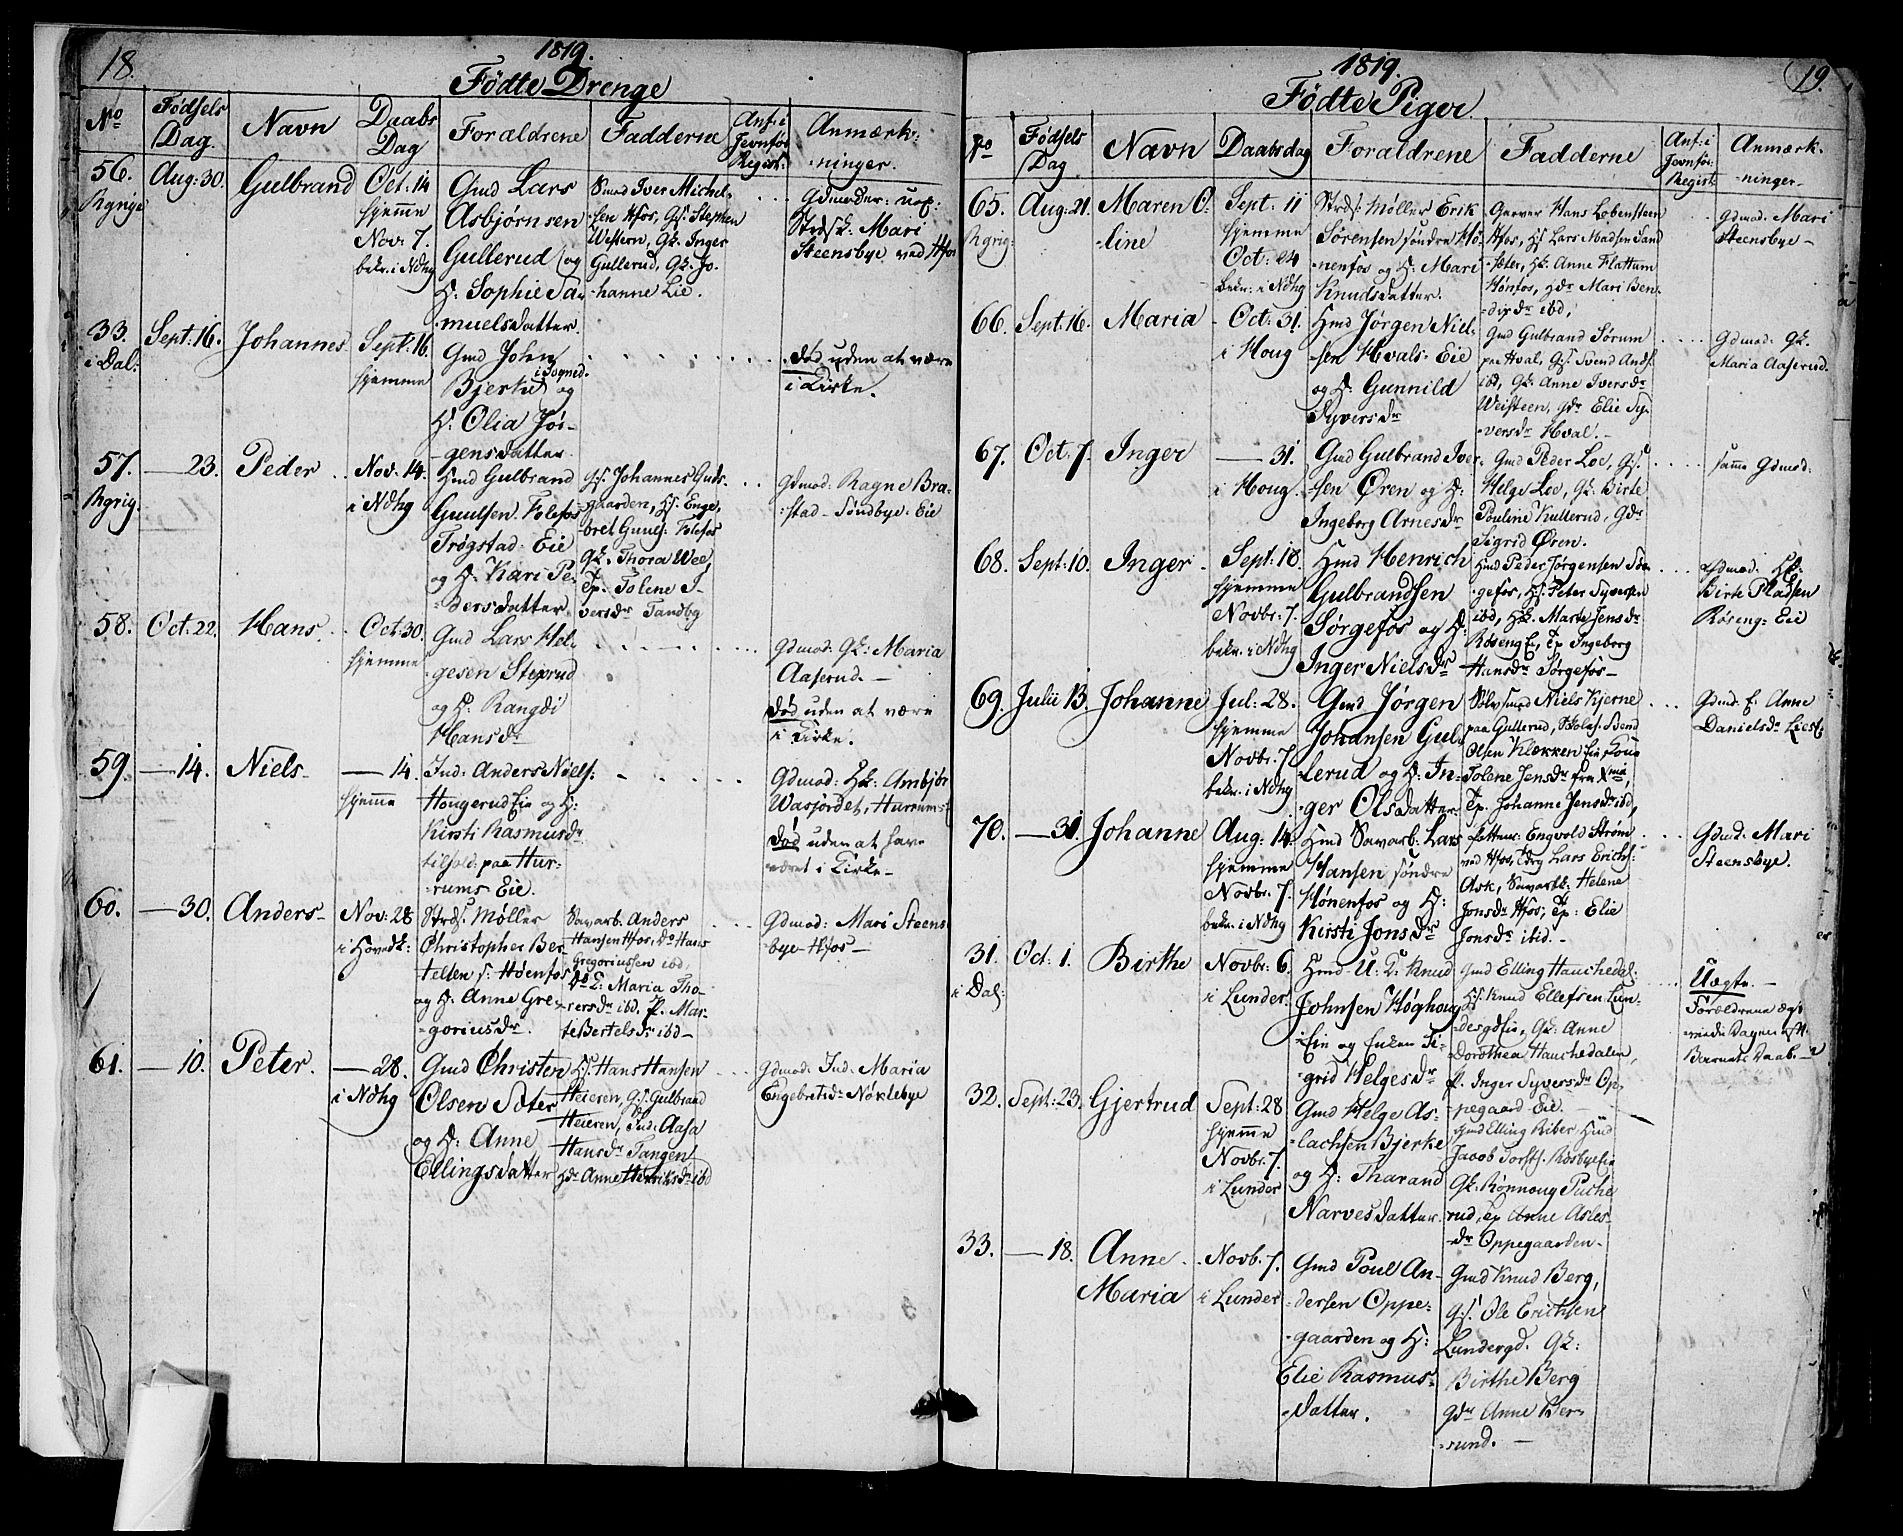 18.
1819.
Fødte Drenge
No
Fødsels Dag.
Navn
Daabs Dag
Foraldrene
Fadderne
Anf: i Jevnför Regist:
Anmærk:
-ninger.
56.
Rgrige
Aug: 30.
Gulbrand
Oct: 14
hjemme
Nov: 7.
bekr. i Ndhg
Gmd Lars
Asbjørnsen
Gullerud og
H: Sophie Sa-
muelsdatter.
Smed Iver Michel-
sen Hfos, Gs. Stephen
Western, Gk. Inger
Gullerud, Gk. Jo-
hanne Lie.
Strdsk. Mari
Steensbye ved Hfos
33.
i Dal:
Sept: 16.
Johannes
Sept: 16.
hjemme
Gmd John
Bjerke i Sogned. og
H: Olia Jør-
-gensdatter.
død uden at være
i Kirke.
57.
Rgrig.
— 23.
Peder
Nov. 14.
i Ndhg
Hmd Gulbrand
Guulsen Folefos
Trøgstad-Eie
og H: Kari Pe-
-dersdatter.
Gs. Johannes Guds-
gaarden, Hs. Enge-
bret Guuls: Folefos
Gk. Thora Wee,
Ep. Tolene I-
versdr Tandbg
Gdmod: Ragne Bra-
-stad-Sondbye-Eie
58.
Oct: 22.
Hans
Oct: 30.
hjemme
Gmd Lars Hel-
-gesen Steprud
og H: Rangdi
Hansdr
Gdmod: Gk: Maria
Aaserud. —
død uden at være
i Kirke.
59
— 14.
Niels
— 14.
hjemme
Ind: Anders Niels:
Hougerud Eie og H:
Kirsti Rasmusdr
tilhold: paa Hur-
-rums Eie.
Gdmod: Hk: Ambjør
Wasjordet, Hurrums E
død uden at have
været i Kirke
60.
— 30.
Anders
Nov: 28
i Hovedk:
Strds. Møller
Christopher Ber-
telsen s: Høenfos
og H: Anne Gre-
-goriusdr.
Savarb: Anders
Hansen Hfos, Do Hans
Gregoriussen ibd,
Do E: Maria Tho-
rersdr ibd. P. Mar-
te Bertelsdr ibd
Gdmod: Mari Steens-
bye Hfos —
61.
— 10.
Peter.
— 28.
i Ndhg
Gmd Christen
Olsen Sæter
og H: Anne
Ellingsdatter
Hs. Hans Hansen
Heieren, Gs: Gulbrand
Heieren, Ind: Aasa
Hansdr Tangen
Hdr Anne Henriksdr ibd
Gdmod: Ind: Maria
Engebretsdr Nøklebye
19.
1819.
Fødte Piger
No
Fødsels Dag
Navn
Daabsdag
Foraldrene
Fadderne
Anf: i Jevnför: Regist:
Anmærk-
-ninger-
65.
Rgrig:
Aug: 21.
Maren O-
-line
Sept: 11
hjemme
Oct: 24
bekr: i Ndhg
Strds. Møller Erik
Sørensen søndre Hø-
-nenfos og H: Mari
Knudsdatter.
Garver Hans Lobensteen
Hfos, Hs Lars Madsen Sand
sæter, Hk: Anne Flattum
Hønfos, Hdr Mari Ben-
-dixdr ibd,
Gdmod: Mari
Steensbye —
66.
Sept: 16.
Maria
Oct: 31.
i Houg
Hmd Jørgen Niel-
-sen Hvals-Eie
og H: Gunnild
Syversdr
Gmd Gulbrand Sørum
paa Hval, Gs. Svend Ands.
ibd, Gk: Anne Iversdr
Weisteen, Gdr Elie Sy-
-versdr Hval. —
Gdmod: Gk.
Maria Aaserud.
67.
Oct: 7.
Inger
— 31.
i Houg.
Gmd Gulbrand Iver-
sen Øren og H:
Ingeborg Arnesdr
Gmd Peder Loe, Gs.
Helge Loe, Gk: Birte
Pouline Kullerud, Gdr
Sigrid Øren.
samme Gdmod:
68.
Sept: 10.
Inger
Sept: 18.
hjemme
Novbr. 7.
bekr. i Ndhg
Hmd Henrich
Gulbrandsen
Sørgefos og H:
Inger Nielsdr
Hmd Peder Jørgensen Sør-
-gefos, Hs. Peter Syversen
ibd, Hk. Marte Jensdr
Røseng E, Ep Ingeborg
Hansdr Sørgefos —
Gdmod. Hk:
Birte Pladsen
Røseng-Eie
69.
Julii 13.
Johanne
Jul: 28.
hjemme
Novbr. 7
bekr. i Ndhg
Gmd Jørgen
Johansen Gul-
-lerud og H: In-
-ger Olsdatter
Sølvsmed Niels Kjerne
paa Gullerud, Skoles: Svend
Olsen Klækken Eie, Kone
Tolene Jensdr fra Xnia
Ep. Johanne Jensdr ibd,
Gdmd. E. Anne
Danielsdr Lie
70.
— 31.
Johanne
Aug. 14.
hjemme
Novbr. 7.
bekr. i Ndhg
Hmd Savarb: Lars
Hansen søndre
Hønenfos og H:
Kirsti Jonsdr
Engvold Strøm
ved Hfos, Lars Erichs:
Ask, Savarbk: Helene
Jonsdr Hfos, Ep: Elie
Jonsdr ibid. —
Gdmod: Mari
Steensbye.
31.
i Dal:
Oct: 1.
Birthe
Novbr: 6.
i Lunder.
Hmd U: K: Knud
Johnsen Høghoug
-Eie og Enken Si-
grid Helgesdr
Gmd Elling Hauchedal-
Hs. Knud Ellefsen Lun-
desgd Eie, Gk: Anne
Dorothea Hauchedalen,
P. Inger Syversdr Op-
pegaard Eie.
Uægte. —
Foreldrene ægt-
viede Dagen eft.
Barnets Daab. —
32.
Sept: 23.
Gjertrud
Sept: 28
hjemme
Novbr. 7.
i Lunder
Gmd Helge As-
-lachsen Bjerke
og H: Tharand
Narvesdatter.
Gmd Elling Riber Hmd
Jacob Torsts. Rosbye Eie
Gk. Rønnoug Puche
rud, Ep Anne Asles-
-dr Oppegaarden
33.
— 18.
Anne
Maria
Novb. 7.
i Lunder
Gmd Poul An-
-dersen Oppe-
gaarden og H:
Elie Rasmus-
-datter.
Gmd Knud Berg,
Gs. Ole Erichsen
Lundergd. Gk:
Birthe Berg
Gdr Anne Ber-
-rund. —